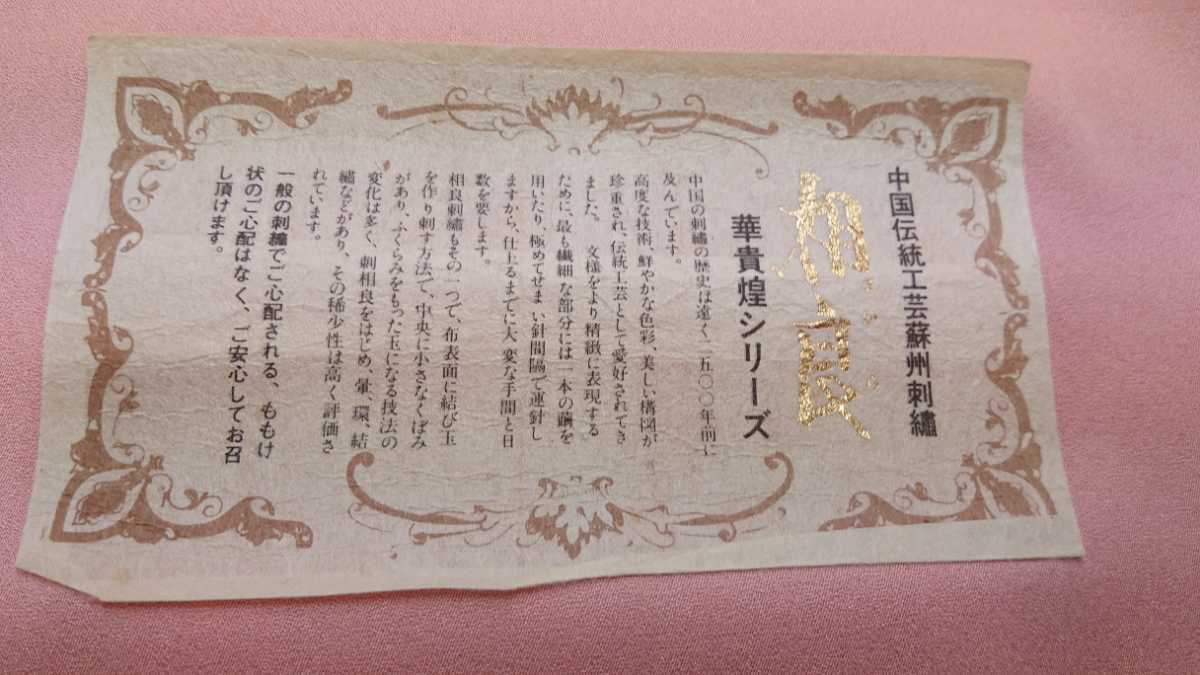 中国伝統工芸蘇州刺繡
相良
さがら
華貴煌シリーズ
中国の刺繡の歴史は遠く二五〇〇年前に
及んでいます。
高度な技術、鮮やかな色彩、美しい構図が
珍重され、伝統工芸として愛好されてき
ました。 文様をより精緻に表現する
ために、最も繊細な部分には一本の繭を
用いたり、極めてせまい針間隔で運針し
ますから、仕上るまでに大変な手間と日
数を要します。
相良刺繡もその一つで、布表面に結び玉
を作り刺す方法で、中央に小さなくぼみ
があり、ふくらみをもった玉になる技法の
変化は多く、刺相良をはじめ、暈、環、結
繡などがあり、その稀少性は高く評価さ
れています。
一般の刺繡でご心配される、ももけ
状のご心配はなく、ご安心してお召
し頂けます。